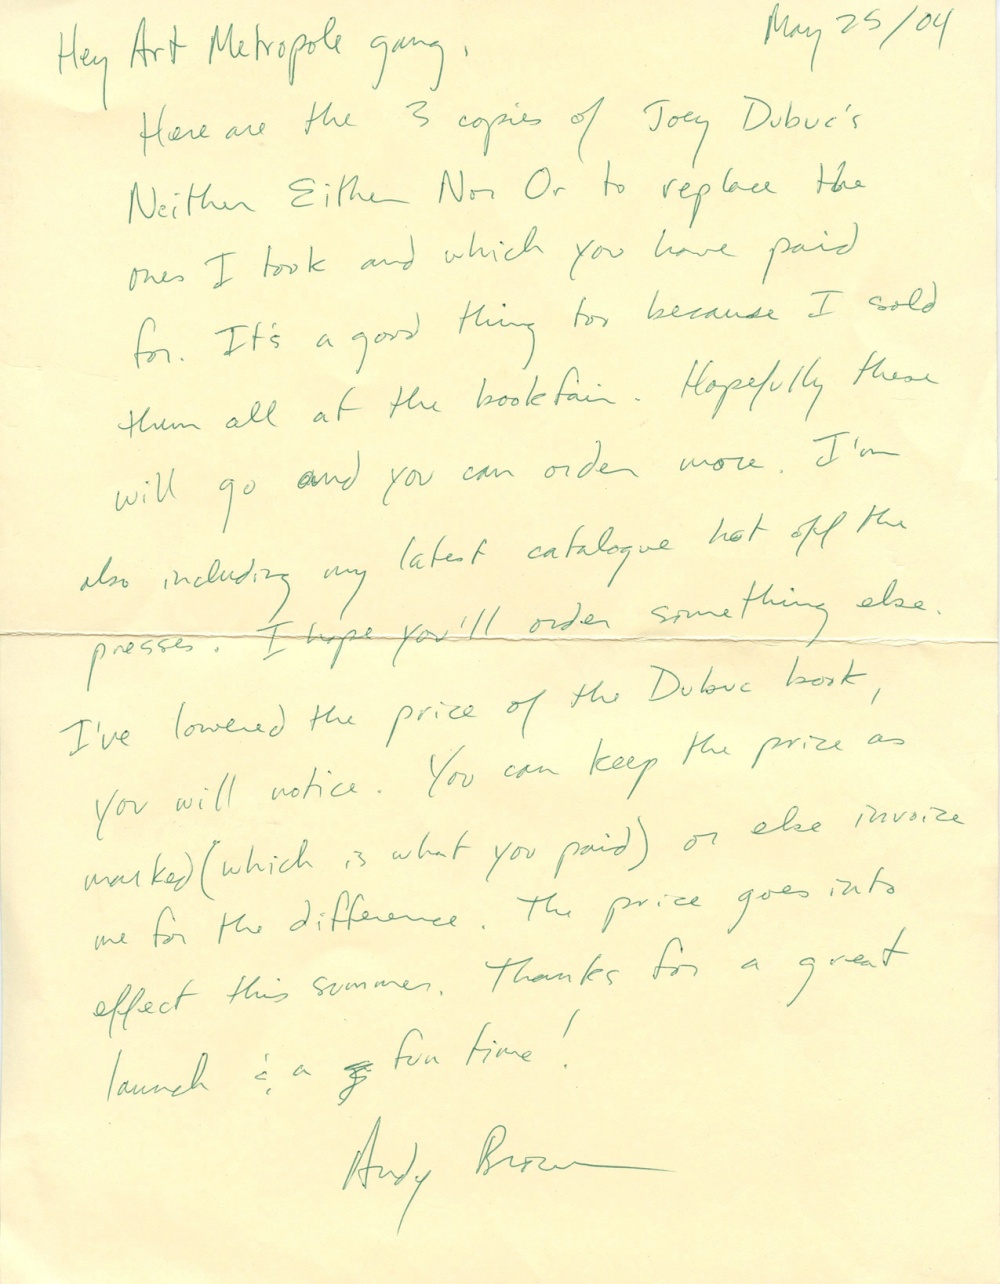 May 25/04
Hey Art Metropole gang,
Here are the 3 copies of Joey Dubuc's
Neither Either Nor Or to replace the
ones I took and which you have paid
for. It's a good thing too because I sold
them all at the bookfair. Hopefully these
will go and you can order more. I'm
also including my latest catalogue hot off the
presses. I hope you'll order something else.
I've lowered the price of the Dubuc book,
you will notice. You can keep the price as
marked (which is what you paid) or else invoice
me for the difference. The price goes into
effect this summer. Thanks for a great
launch & a fun time!
Andy Brown